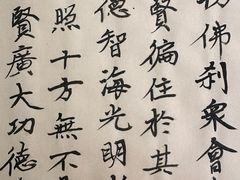 切佛刹眾會
賢徧住於其
德智海光明
照十方無不
賢廣大功德